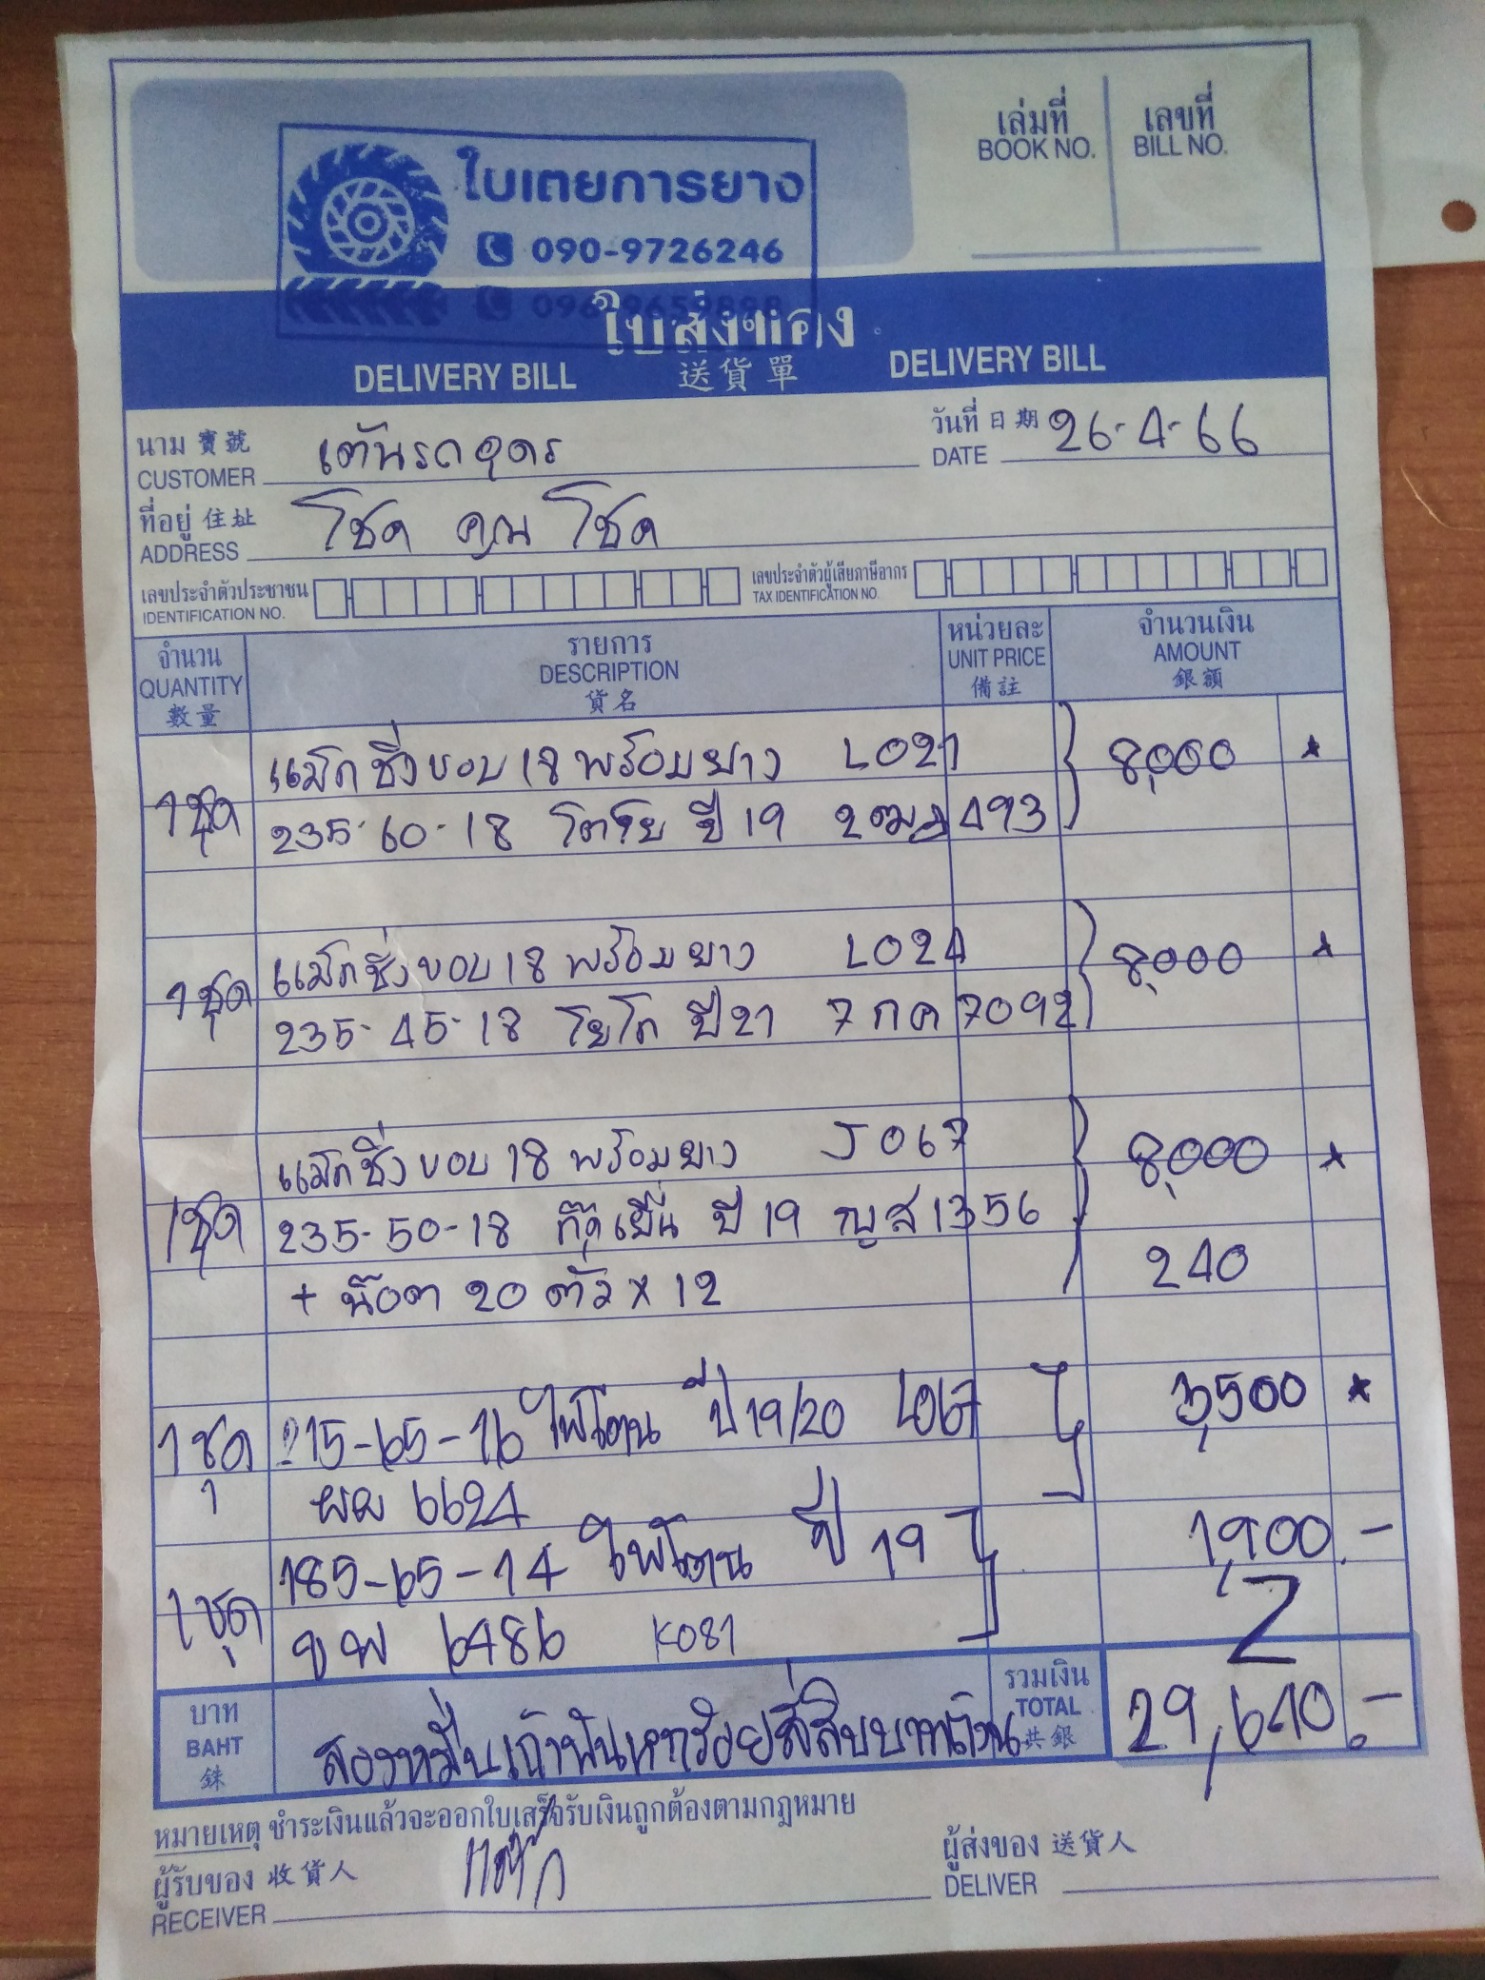 เล่มที่ เลขที่
BOOK NO. BILL NO.
ใบเตยการยาง
090-9726246
096-9659898
ใบส่งของ
DELIVERY BILL 送貨單 DELIVERY BILL
นาม 寶號 วันที่ 日期 26-4-66
CUSTOMER เต้นรถอุดร DATE
ที่อยู่ 住址 โชค คุณ โชค
ADDRESS
เลขประจำตัวประชาชน เลขประจำตัวผู้เสียภาษีอากร
IDENTIFICATION NO. TAX IDENTIFICATION NO.
จำนวน รายการ หน่วยละ จำนวนเงิน
QUANTITY DESCRIPTION UNIT PRICE AMOUNT
數量 貨名 備註 銀額
แม็กซิ่งขอบ 18 พร้อมยาง L021 8,000
1ชุด 235-60-18 โตโย ปี 19 2ฒฎ 493
แม็กซิ่งขอบ 18 พร้อมยาง L024 8,000
1ชุด 235-45-18 โยโก ปี 21 7กค 7092
แม็กซิ่งขอบ 18 พร้อมยาง J067 8,000
1ชุด 235-50-18 กู๊ดเยียร์ ปี 19 ญส 1356
+ น๊อต 20 ตัว x 12 240
1ชุด 215-65-16 ไฟโตน ปี 19/20 L067 3,500
ผผ 6624
185-65-14 ไฟโตน ปี 19 1,900.-
1ชุด ขพ 6486 K081
บาท รวมเงิน
BAHT สองหมื่นเก้าพันหกร้อยสี่สิบบาทถ้วน TOTAL 29,640.-
銖 共銀
หมายเหตุ ชำระเงินแล้วจะออกใบเสร็จรับเงินถูกต้องตามกฎหมาย
ผู้รับของ 收貨人 ผู้ส่งของ 送貨人
RECEIVER DELIVER